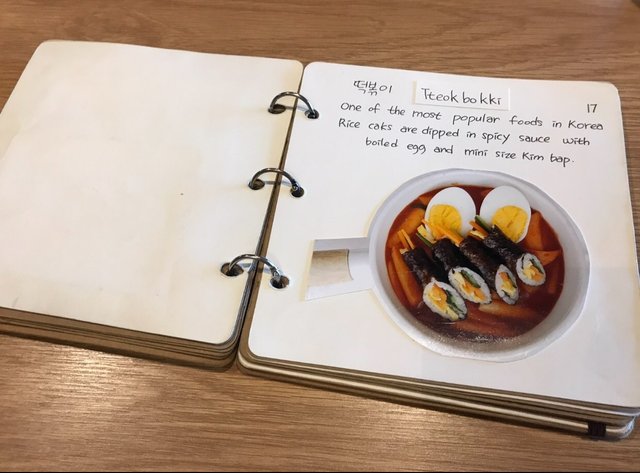 떡볶이 Tteokbokki 17
One of the most popular foods in Korea
Rice caks are dipped in spicy sauce with
boiled egg and mini size Kim bap.